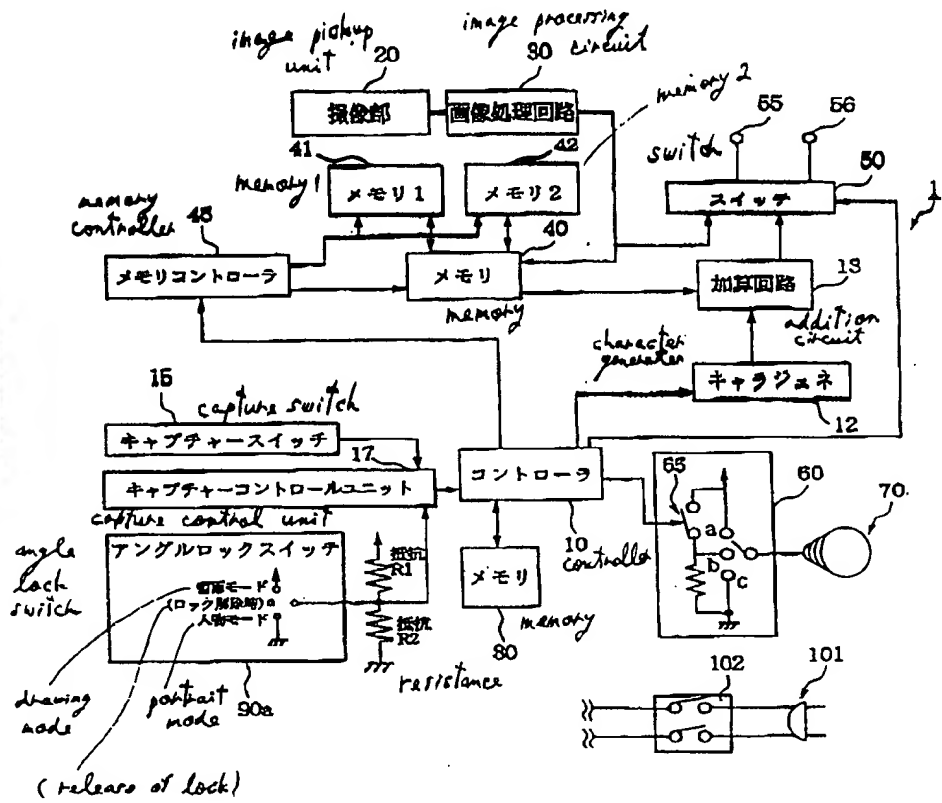 image pickup
unit
image processing
circuit
20
30
memory 2
撮像部
画像処理回路
55
56
switch
50
41
42
memory 1
メモリ1
メモリ2
スイッチ
1
memory
controller
45
40
メモリコントローラ
メモリ
memory
加算回路
13
addition
circuit
character
generater
キャラジェネ
12
15
capture switch
キャプチャースイッチ
17
キャプチャーコントロールユニット
capture control unit
コントローラ
10 controller
65
60
70
a
b
c
angle
lock
switch
アングルロックスイッチ
書画モード
(ロック解除時)
人物モード
抵抗
R1
抵抗
R2
resistance
メモリ
memory
80
90a
drawing
mode
portrait
mode
(release of lock)
102
101